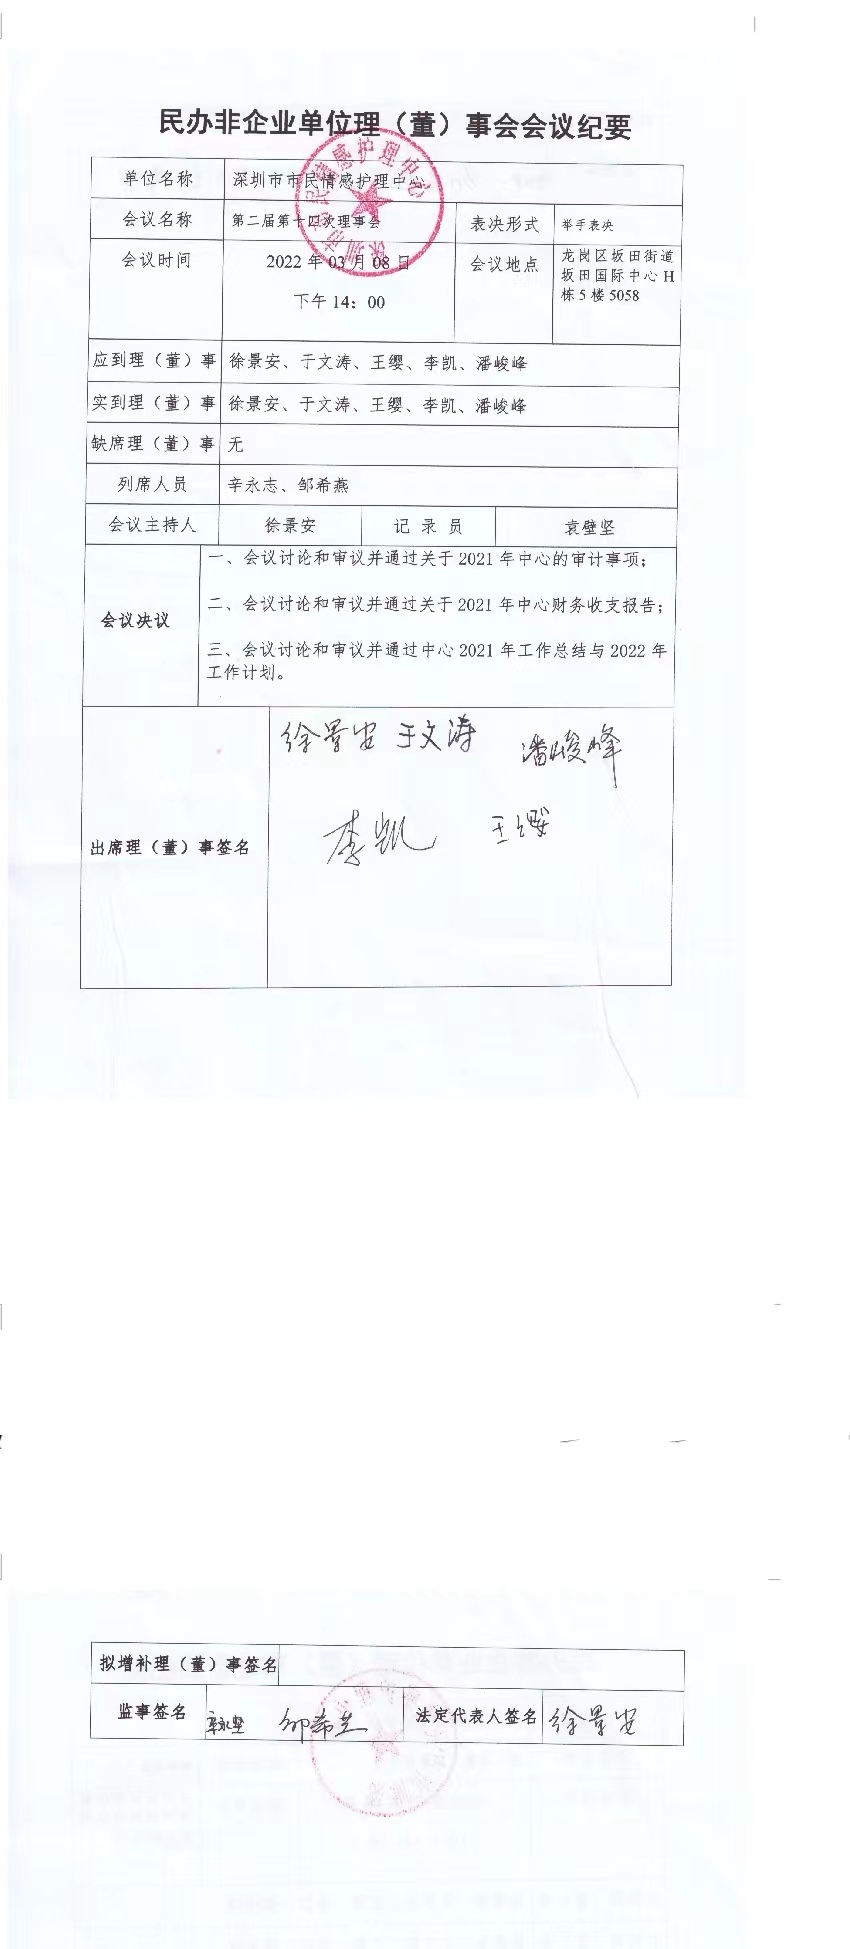 民办非企业单位理（董）事会会议纪要
单位名称 深圳市市民情感护理中心
会议名称 第二届第十四次理事会 表决形式 举手表决
会议时间 2022 年 03 月 08 日
下午 14：00
会议地点 龙岗区坂田街道
坂田国际中心 H
栋 5 楼 5058
应到理（董）事 徐景安、于文涛、王缨、李凯、潘峻峰
实到理（董）事 徐景安、于文涛、王缨、李凯、潘峻峰
缺席理（董）事 无
列席人员 辛永志、邹希燕
会议主持人 徐景安 记 录 员 袁壁坚
会议决议
一、会议讨论和审议并通过关于 2021 年中心的审计事项；
二、会议讨论和审议并通过关于 2021 年中心财务收支报告；
三、会议讨论和审议并通过中心 2021 年工作总结与 2022 年
工作计划。
出席理（董）事签名
徐景安 于文涛 潘峻峰
李凯 王缨
深圳市市民情感护理中心
拟增补理（董）事签名
监事签名 法定代表人签名 徐景安